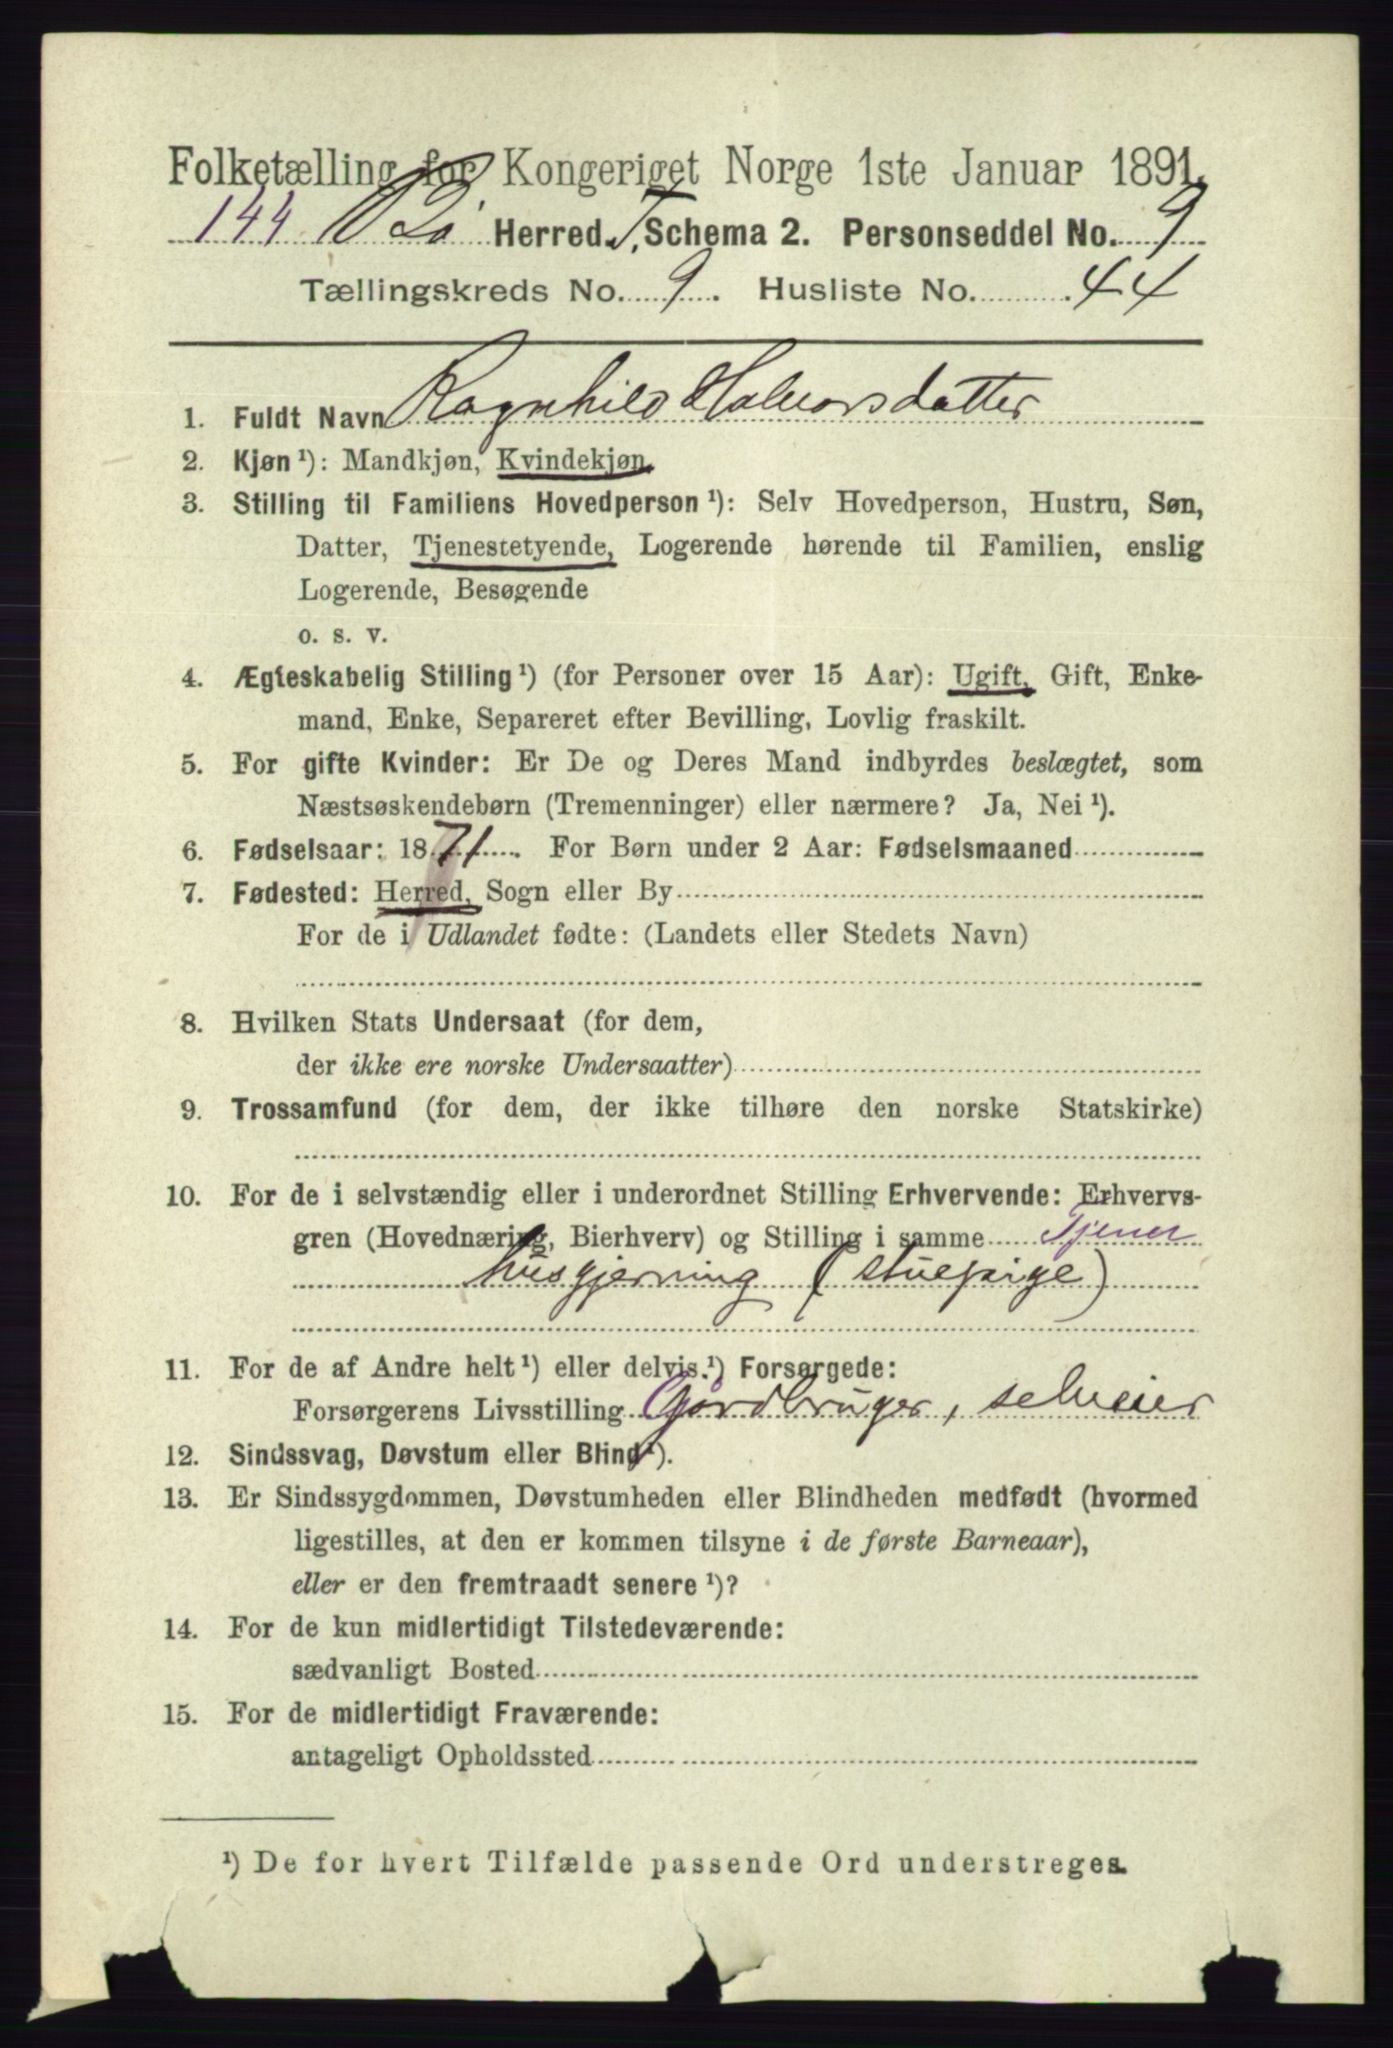 Folketælling for Kongeriget Norge 1ste Januar 1891.
144 Bø Herred. T. Schema 2. Personseddel No. 9
Tællingskreds No. 9. Husliste No. 44
1. Fuldt Navn Ragnhild Halvorsdatter
2. Kjøn ¹): Mandkjøn, Kvindekjøn.
3. Stilling til Familiens Hovedperson ¹): Selv Hovedperson, Hustru, Søn,
Datter, Tjenestetyende, Logerende hørende til Familien, enslig
Logerende, Besøgende
o. s. v.
4. Ægteskabelig Stilling ¹) (for Personer over 15 Aar): Ugift, Gift, Enke-
mand, Enke, Separeret efter Bevilling, Lovlig fraskilt.
5. For gifte Kvinder: Er De og Deres Mand indbyrdes beslægtet, som
Næstsøskendebørn (Tremenninger) eller nærmere? Ja, Nei ¹).
6. Fødselsaar: 1871. For Børn under 2 Aar: Fødselsmaaned
7. Fødested: Herred, Sogn eller By
For de i Udlandet fødte: (Landets eller Stedets Navn)
8. Hvilken Stats Undersaat (for dem,
der ikke ere norske Undersaatter)
9. Trossamfund (for dem, der ikke tilhøre den norske Statskirke)
10. For de i selvstændig eller i underordnet Stilling Erhvervende: Erhvervs-
gren (Hovednæring, Bierhverv) og Stilling i samme Tjener
husgjerning (stuepige)
11. For de af Andre helt ¹) eller delvis.¹) Forsørgede:
Forsørgerens Livsstilling Gårdbruger, selveier
12. Sindssvag, Døvstum eller Blind ¹).
13. Er Sindssygdommen, Døvstumheden eller Blindheden medfødt (hvormed
ligestilles, at den er kommen tilsyne i de første Barneaar),
eller er den fremtraadt senere ¹)?
14. For de kun midlertidigt Tilstedeværende:
sædvanligt Bosted
15. For de midlertidigt Fraværende:
antageligt Opholdssted
¹) De for hvert Tilfælde passende Ord understreges.